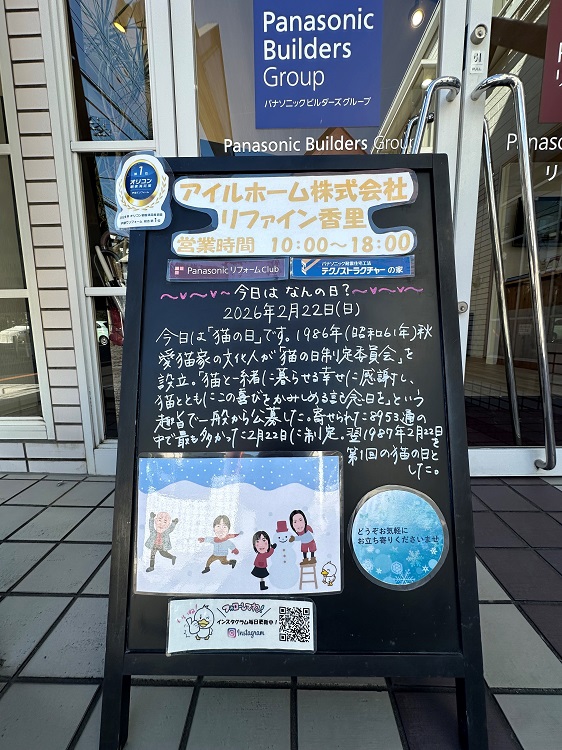 Panasonic
Builders
Group
パナソニック ビルダーズ グループ
Panasonic Builders Group
Panasonic
リ
第1位
オリコン
顧客満足度
アイルホーム株式会社
リファイン香里
営業時間 10:00〜18:00
Panasonic リフォーム Club
パナソニック耐震住宅工法
テクノストラクチャーの家
今日は なんの日?
2026年2月22日(日)
今日は「猫の日」です。1986年(昭和61年)秋
愛猫家の文化人が「猫の日制定委員会」を
設立。「猫と一緒に暮らせる幸せに感謝し、
猫とともにこの喜びをかみしめる記念日を」という
趣旨で一般から公募した。寄せられた8953通の
中で最も多かった2月22日に制定。翌1987年2月22日を
第1回の猫の日と
した。
どうぞお気軽に
お立ち寄りくださいませ
フォローしてね!
インスタグラム毎日更新中!
Instagram